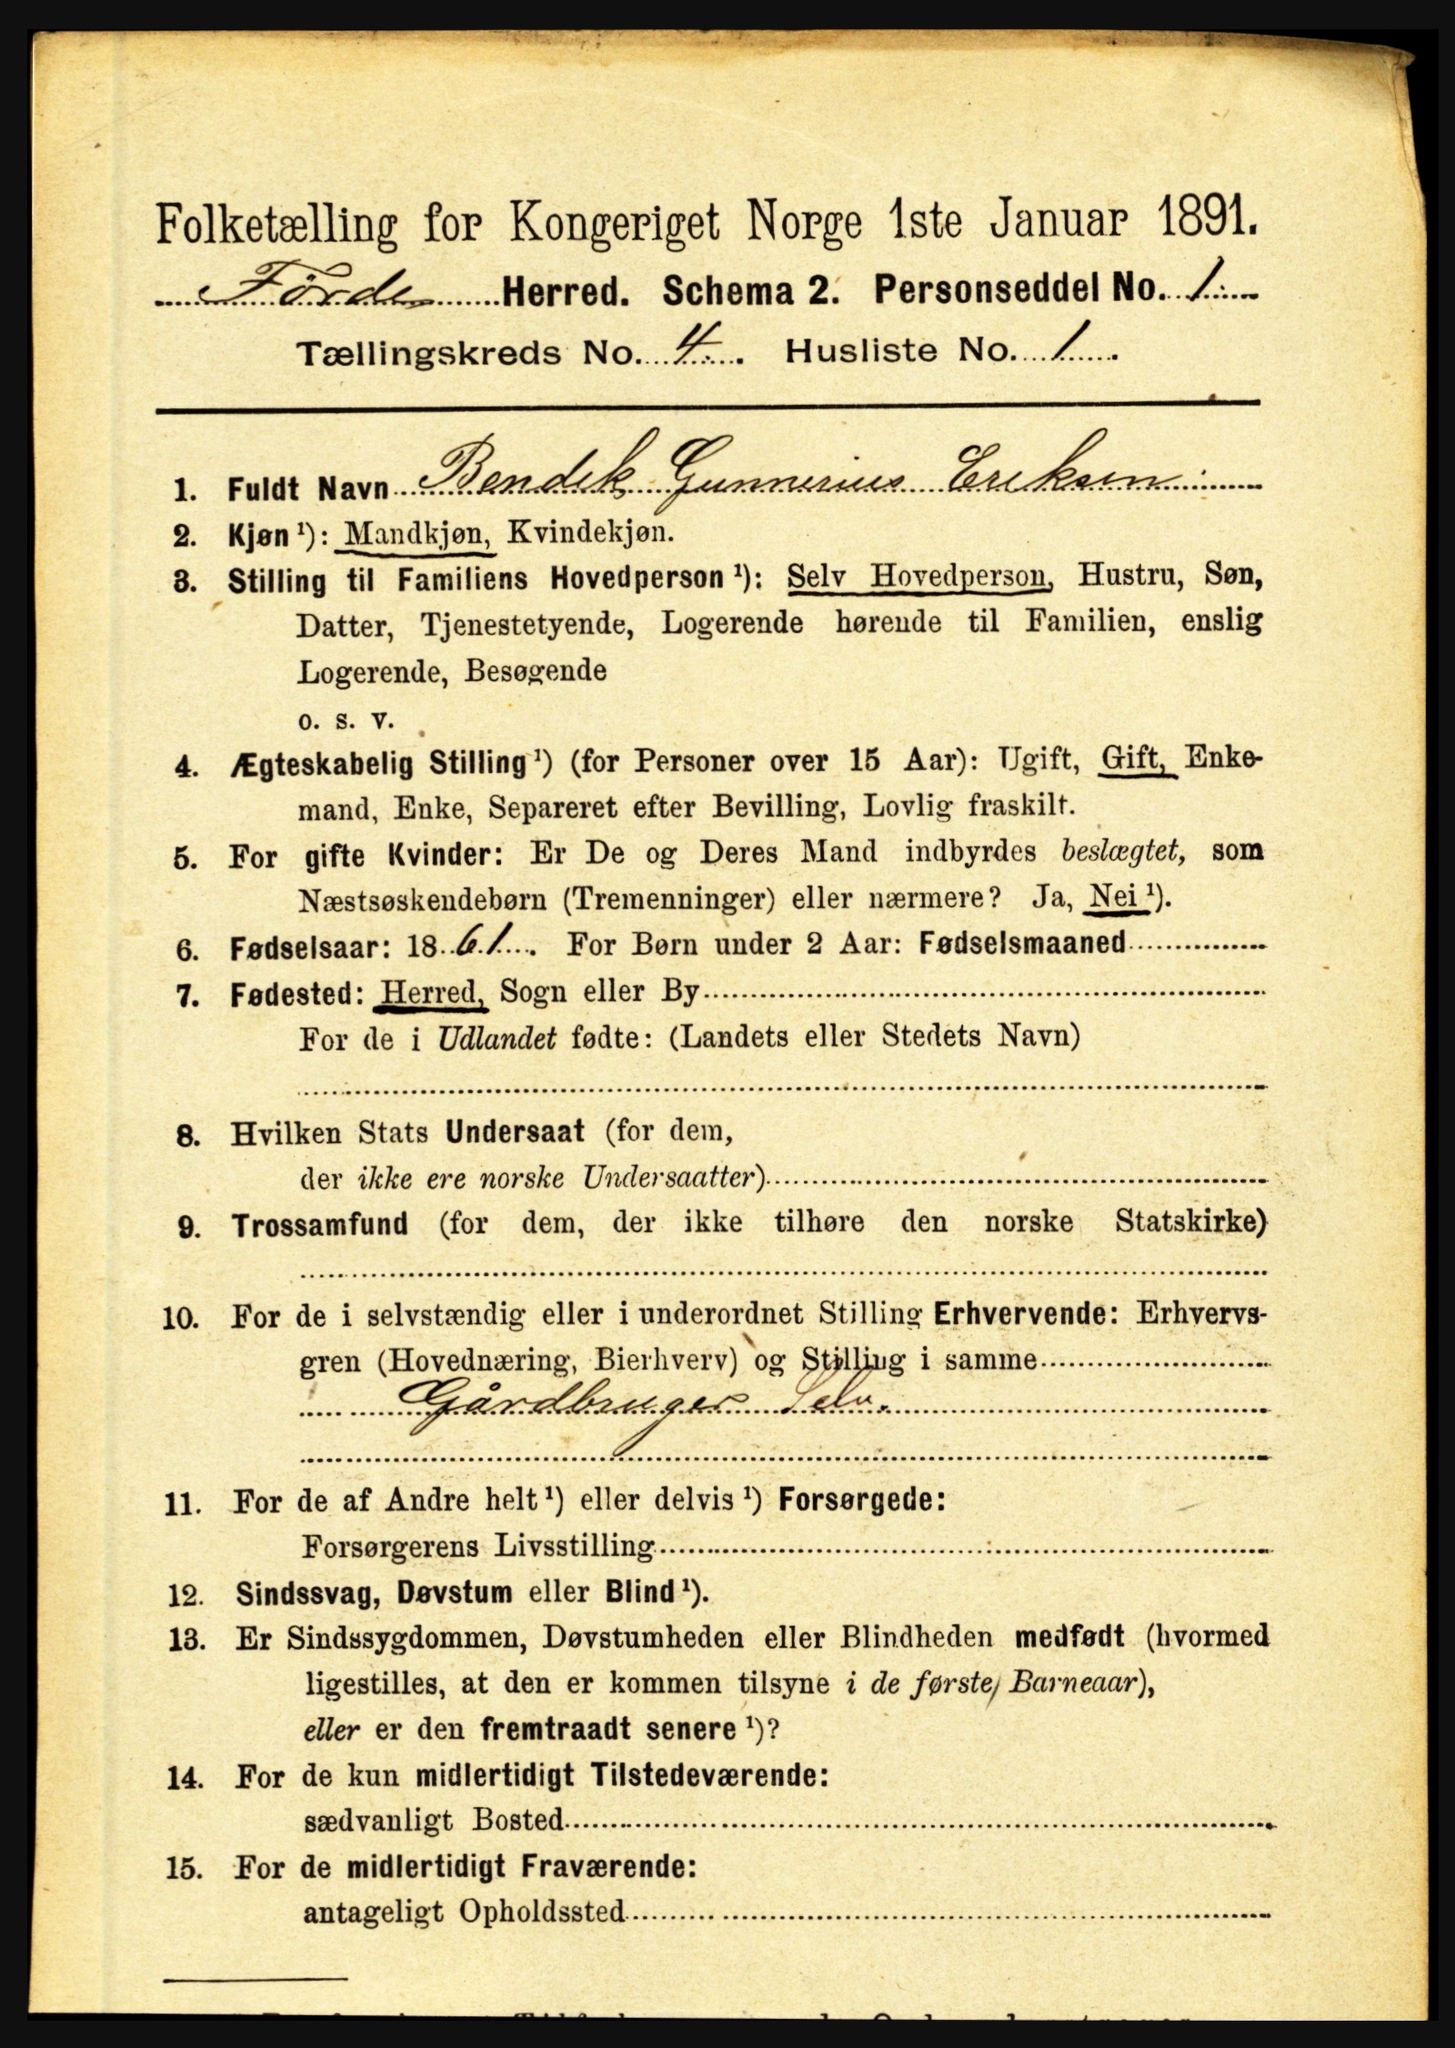 Folketælling for Kongeriget Norge 1ste Januar 1891.
Förde Herred. Schema 2. Personseddel No. 1.
Tællingskreds No. 4. Husliste No. 1.
1. Fuldt Navn Bendik Gunnerius Eriksen
2. Kjøn ¹): Mandkjøn, Kvindekjøn.
3. Stilling til Familiens Hovedperson ¹): Selv Hovedperson, Hustru, Søn,
Datter, Tjenestetyende, Logerende hørende til Familien, enslig
Logerende, Besøgende
o. s. v.
4. Ægteskabelig Stilling ¹) (for Personer over 15 Aar): Ugift, Gift, Enke-
mand, Enke, Separeret efter Bevilling, Lovlig fraskilt.
5. For gifte Kvinder: Er De og Deres Mand indbyrdes beslægtet, som
Næstsøskendebørn (Tremenninger) eller nærmere? Ja, Nei ¹).
6. Fødselsaar: 1861. For Børn under 2 Aar: Fødselsmaaned
7. Fødested: Herred, Sogn eller By
For de i Udlandet fødte: (Landets eller Stedets Navn)
8. Hvilken Stats Undersaat (for dem,
der ikke ere norske Undersaatter)
9. Trossamfund (for dem, der ikke tilhøre den norske Statskirke)
10. For de i selvstændig eller i underordnet Stilling Erhvervende: Erhvervs-
gren (Hovednæring, Bierhverv) og Stilling i samme
Gårdbruger Selv.
11. For de af Andre helt ¹) eller delvis ¹) Forsørgede:
Forsørgerens Livsstilling
12. Sindssvag, Døvstum eller Blind ¹).
13. Er Sindssygdommen, Døvstumheden eller Blindheden medfødt (hvormed
ligestilles, at den er kommen tilsyne i de første Barneaar),
eller er den fremtraadt senere ¹)?
14. For de kun midlertidigt Tilstedeværende:
sædvanligt Bosted
15. For de midlertidigt Fraværende:
antageligt Opholdssted